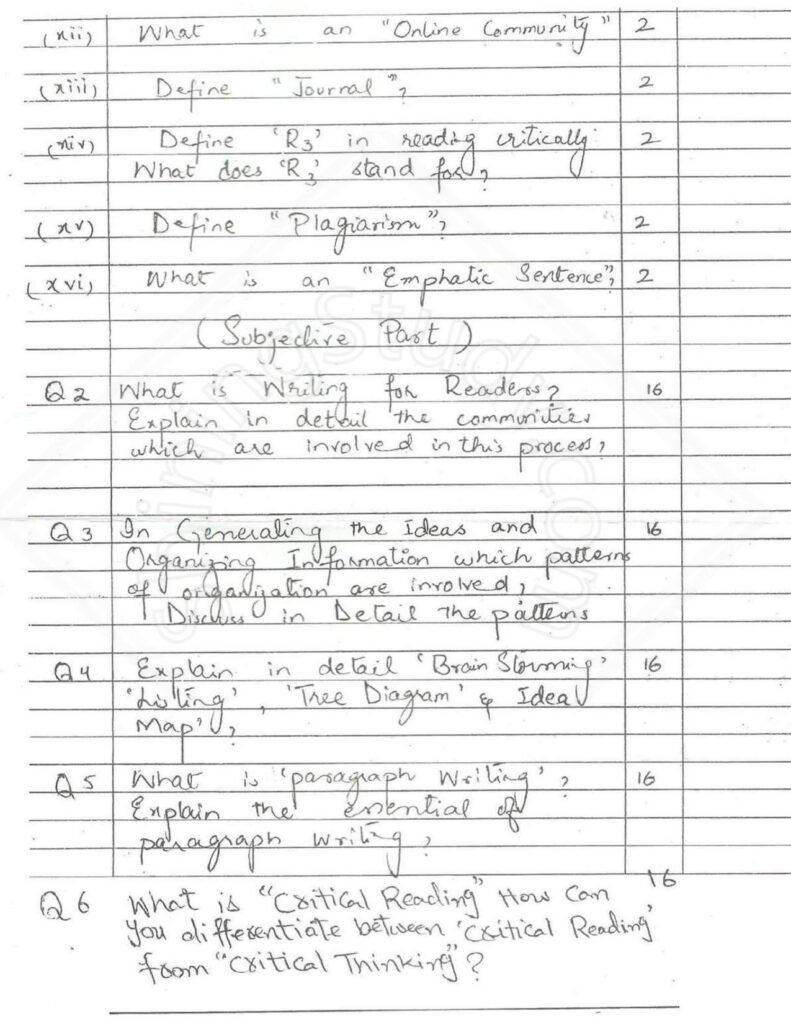 (xii) What is an "Online Community" 2
(xiii) Define "Journal"? 2
(xiv) Define 'R3' in readig critically. 2
What does 'R3' stand for?
(xv) Define "Plagiarism"? 2
(xvi) What is an "Emphatic Sentence"? 2
(Subjective Part)
Q2 What is Writing for Readers? 16
Explain in detail the communities
which are involved in this process?
Q3 In Generating the Ideas and 16
Organizing Information which patterns
of organization are involved?
Discuss in Detail the patterns
Q4 Explain in detail 'Brain Storming' 16
'Listing', 'Tree Diagram' & Idea
Map'?
Q5 What is 'paragraph Writing'? 16
Explain the essential of
paragraph writing?
16
Q6 What is "Critical Reading" How Can
you differentiate between 'Critical Reading'
from "Critical Thinking"?